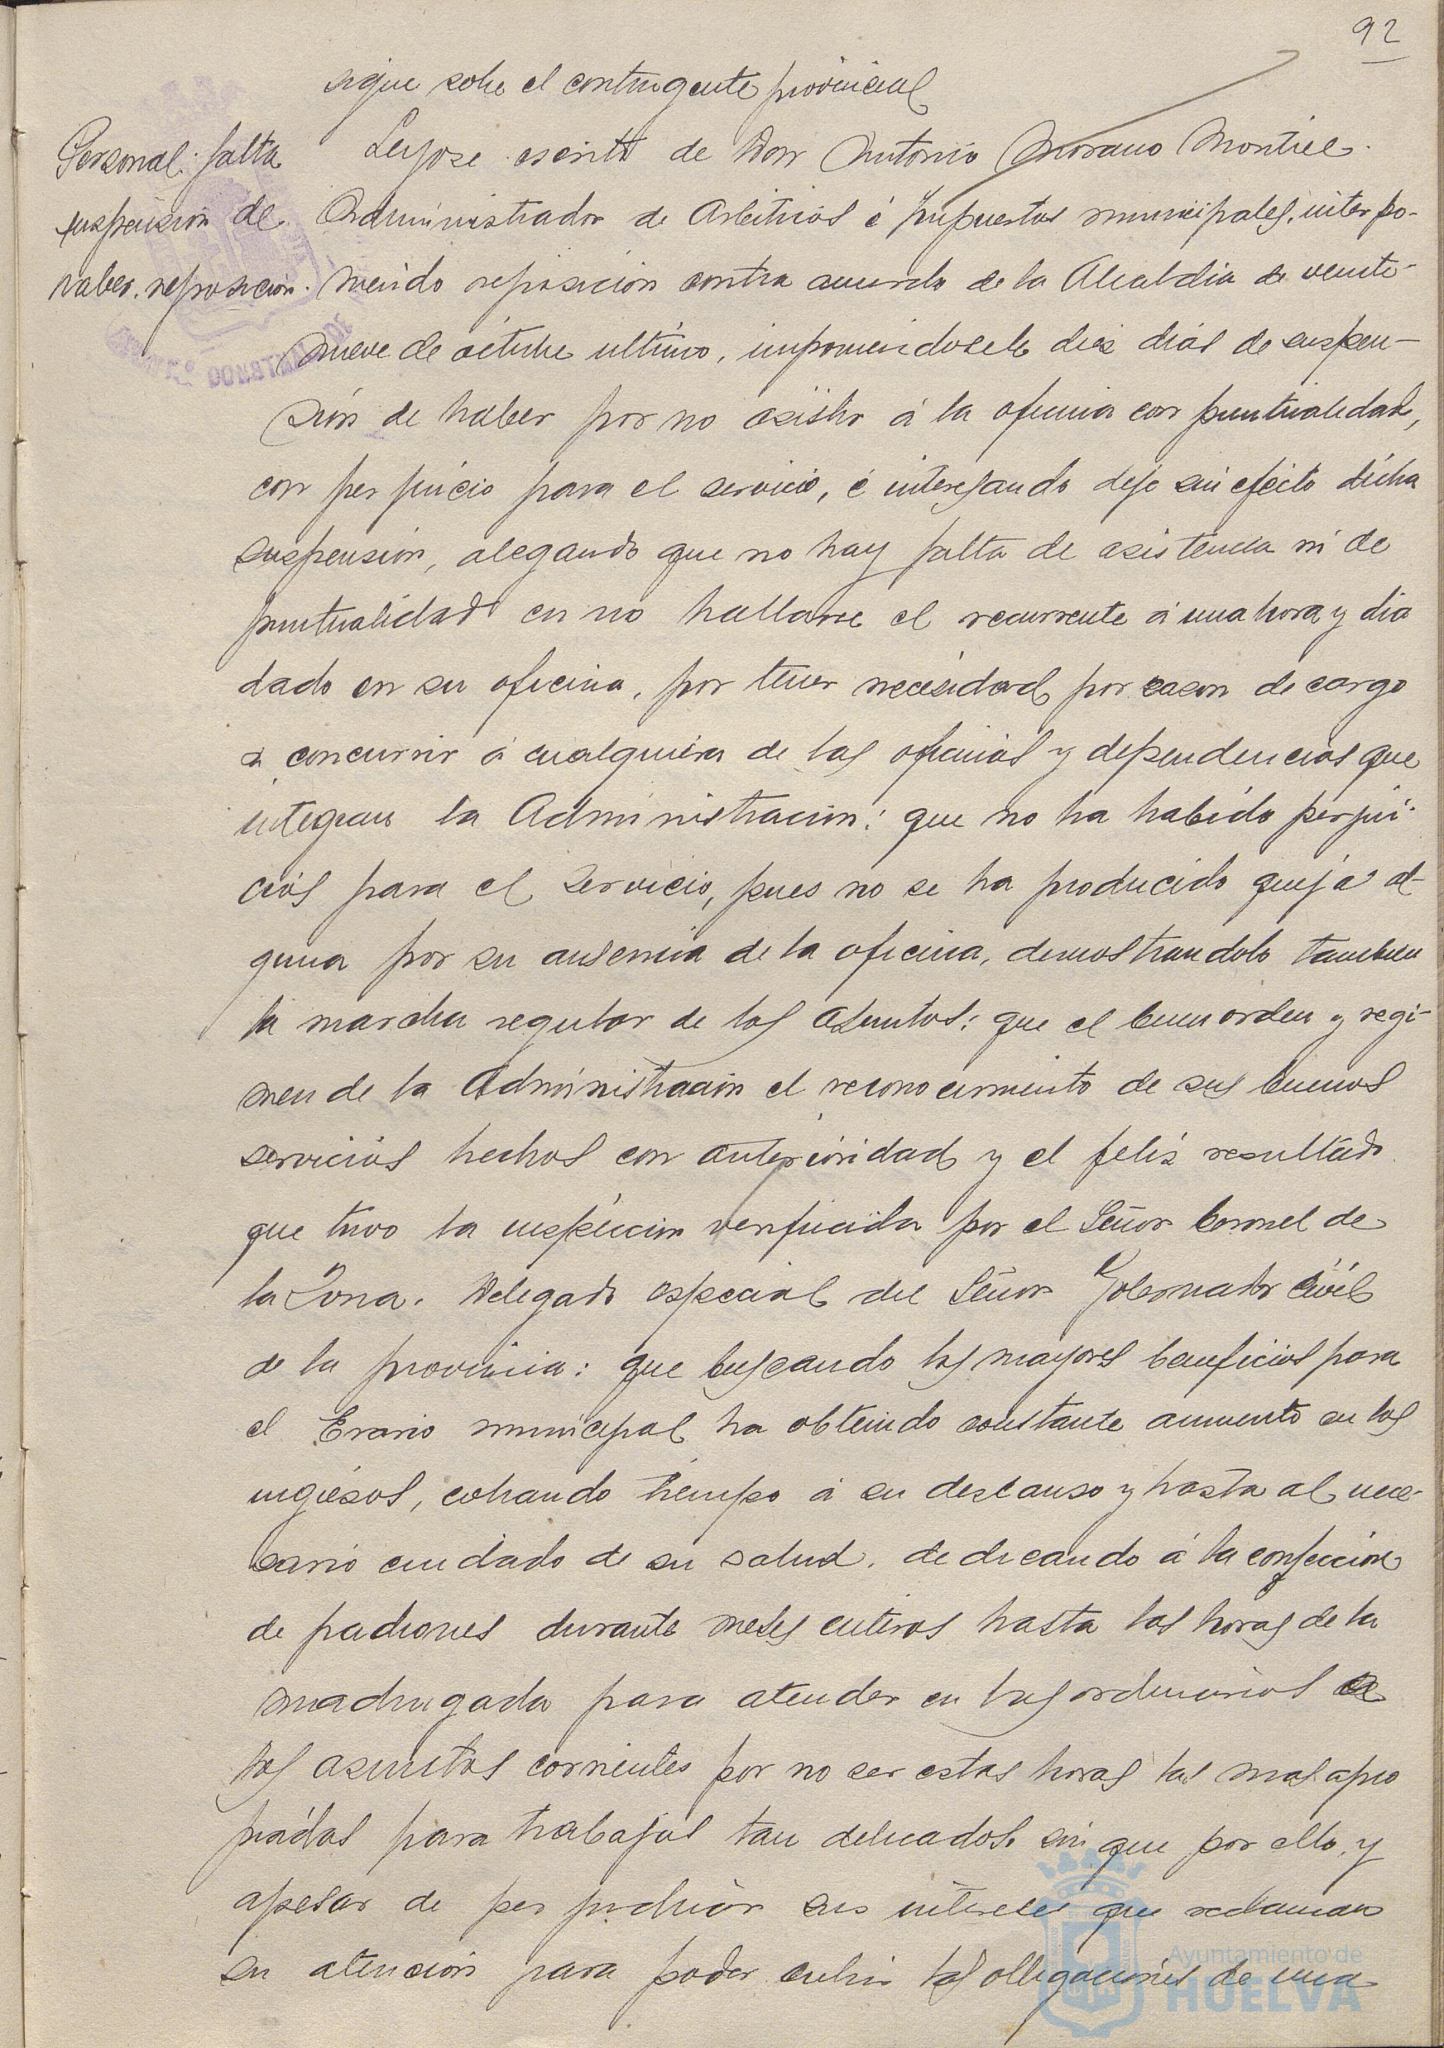 92
sigue sobre el contingente provincial
Personal: falta
suspension de
haber. reposición.
Leyose escrito de Don Antonio Morano Montiel.
Administrador de Arbitrios é impuestos municipales, interpo-
niendo reposición contra acuerdo de la Alcaldia de veinte-
nueve de octubre ultimo, imponiendosele diez dias de suspen-
sión de haber por no asistir á la oficina con puntualidad,
con perjuicio para el servicio, é interesando deje sin efecto dicha
suspensión, alegando que no hay falta de asistencia ni de
puntualidad en no hallarse el recurrente á una hora y dia
dado en su oficina, por tener necesidad por razon de cargo
a concurrir á cualquiera de las oficinas y dependencias que
integran la Administración: que no ha habido perjui-
cios para el servicio, pues no se ha producido queja al-
guna por su ausencia de la oficina, demostrandolo tambien
la marcha regular de los asuntos: que el buen orden y regi-
men de la Administración el reconocimiento de sus buenos
servicios hechos con anterioridad y el feliz resultado
que tuvo la inspeccion verificada por el Señor Coronel de
la Zona. Delegado especial del Señor Gobernador Civil
de la provincia: que buscando los mayores beneficios para
el Erario municipal ha obtenido constante aumento en los
ingresos, robando tiempo á su descanso y hasta al nece-
sario cuidado de su salud, dedicando á la confeccion
de padrones durante meses enteros hasta las horas de la
madrugada para atender en las ordinarias a
los asuntos corrientes por no ser estas horas las mas apro
piadas para trabajos tan delicados, sin que por ello, y
apesar de perjudicar sus intereses que reclaman
su atención para poder cubrir las obligaciones de una
Ayuntamiento de
HUELVA